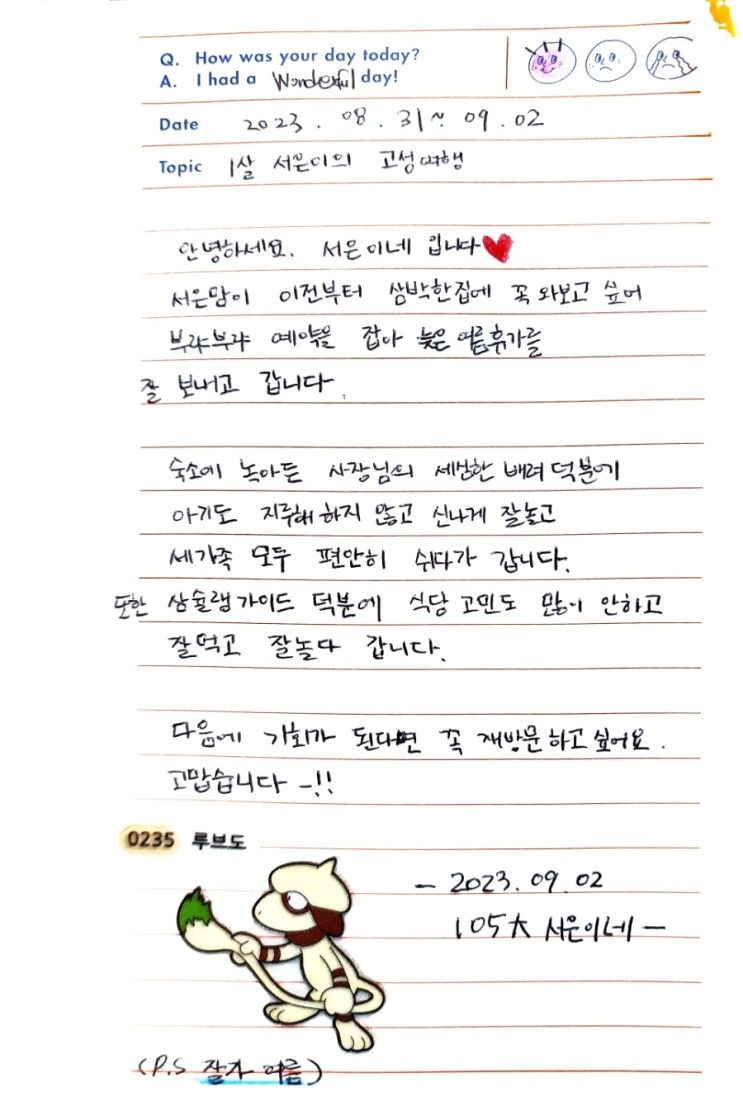 Q. How was your day today?
A. I had a Wonderful day!
Date 2023. 08. 31 ~ 09. 02
Topic 1살 서은이의 고성여행
안녕하세요. 서은이네 입니다♥
서은맘이 이전부터 삼박한집에 꼭 와보고 싶어
부랴부랴 예약을 잡아 늦은 여름휴가를
잘 보내고 갑니다.
숙소에 녹아든 사장님의 세심한 배려 덕분에
아기도 지루해 하지 않고 신나게 잘놀고
세가족 모두 편안히 쉬다가 갑니다.
또한 삼슐랭가이드 덕분에 식당 고민도 많이 안하고
잘먹고 잘놀다 갑니다.
다음에 기회가 된다면 꼭 재방문하고 싶어요.
고맙습니다 -!!
0235 루브도
- 2023. 09. 02
105大 서은이네 -
(P.S 잘가 여름)